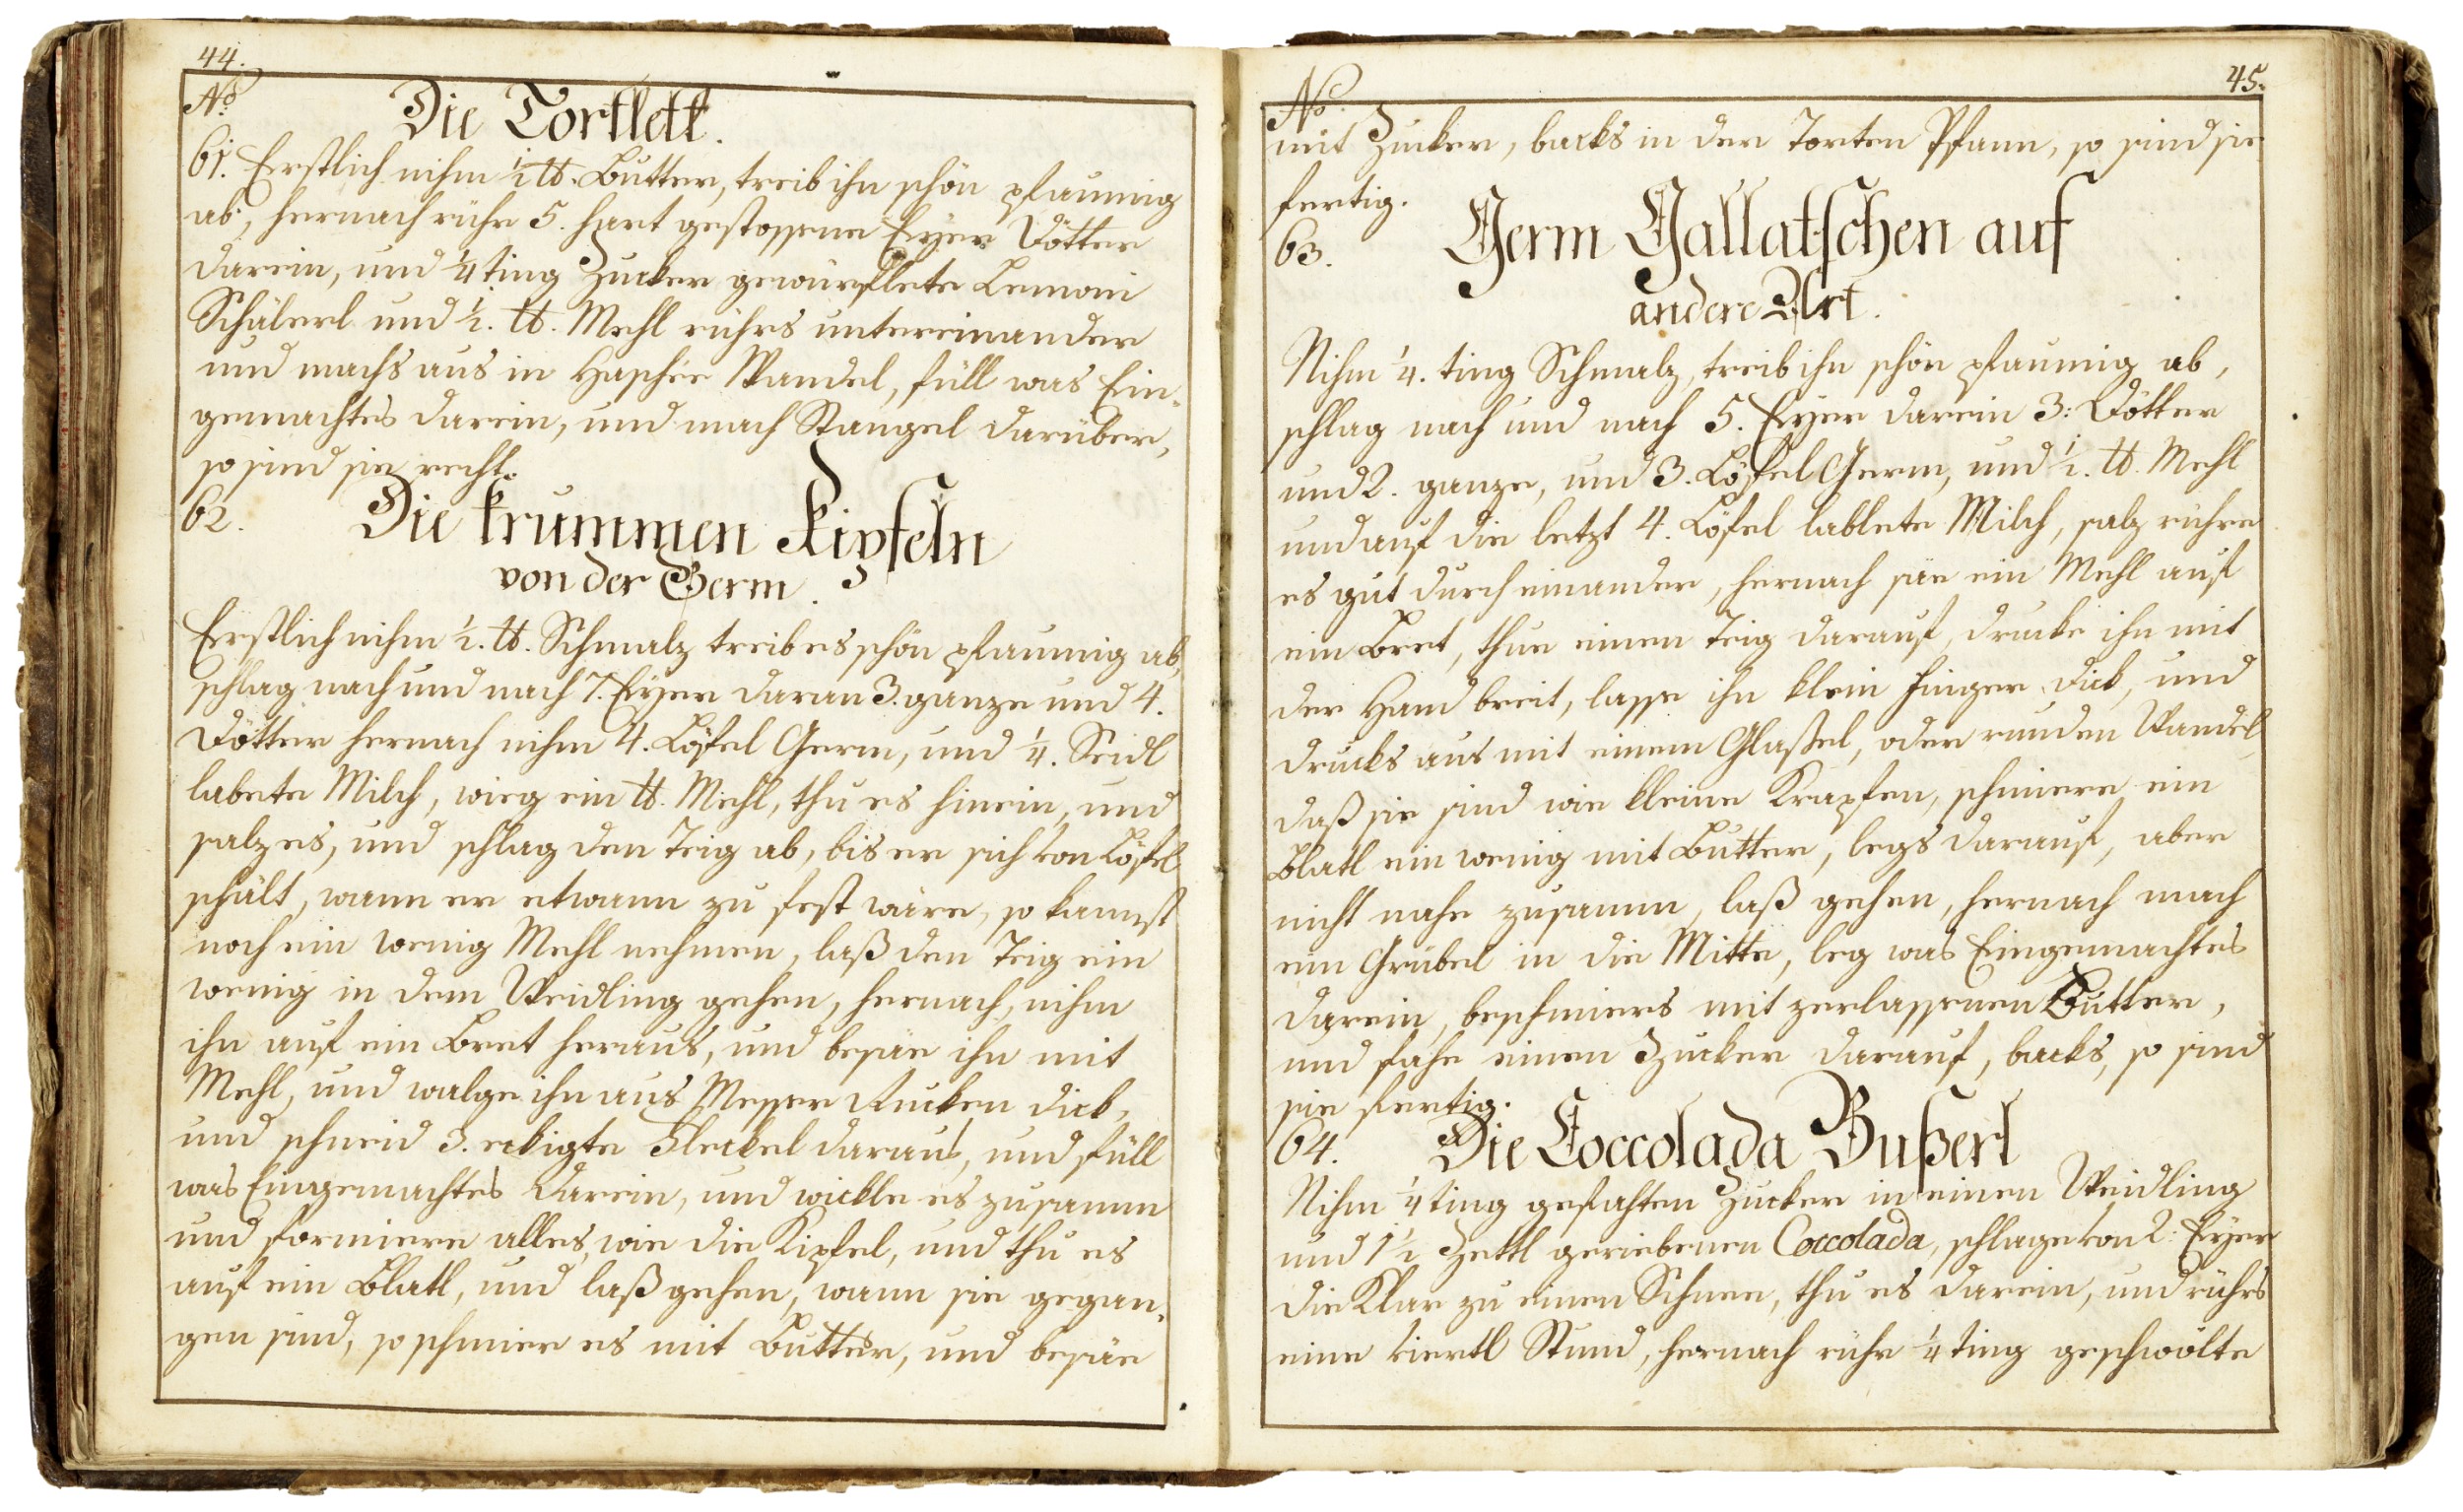 44.
No
Die Tortlett.
61. Erstlich nihm ½ ℔. Butter, treib ihn schön pflaumig
ab, hernach rühr 5. hart gestossene Eyer Dötter
darein, und ¼ting Zucker gewürflete Lemoni
Schälerl und ½. ℔. Mehl rührs untereinander
und machs aus in Haschée Wandel, füll was Ein-
gemachtes darein, und mach Stangel darüber,
so sind sie recht.
62. Die krummen Kipfeln
von der Germ.
Erstlich nihm ½. ℔. Schmalz treib es schön pflaumig ab,
schlag nach und nach 7. Eyer daran 3. ganze und 4.
Dötter hernach nihm 4. Löfel Germ, und ¼. Seidl
labete Milch, wieg ein ℔. Mehl, thu es hinein, und
salz es, und schlag den Teig ab, bis er sich von Löfel
schält, wann er etwann zu fest wäre, so kannst
noch ein wenig Mehl nehmen, laß den Teig ein
wenig in dem Weidling gehen, hernach, nihm
ihn auf ein Bret heraus, und besäe ihn mit
Mehl, und walge ihn aus Messer Rucken dick,
und schneid 3. eckigte Fleckel daraus, und füll
was Eingemachtes darein, und wickle es zusamm
und formiere alles, wie die Kipfel, und thu es
auf ein Blatl, und laß gehen, wann sie gegan-
gen sind, so schmier es mit Butter, und besäe
45.
No.
mit Zucker, backs in der Torten Pfann, so sind sie
fertig.
63. Germ Gallatschen auf
andere Art.
Nihm ¼. ting Schmalz, treib ihn schön pflaumig ab,
schlag nach und nach 5. Eyer darein 3: Dötter
und 2. ganze, und 3. Löfel Germ, und ½. ℔. Mehl
und auf die letzt 4. Löfel lablete Milch, salz rühre
es gut durch einander, hernach säe ein Mehl auf
ein Bret, thue einen Teig darauf, drucke ihn mit
der Hand breit, lasse ihn klein Finger dick, und
drucks aus mit einem Glaßel, oder runden Wandel,
daß sie sind wie kleine Krapfen, schmiere ein
Blatl ein wenig mit Butter, legs darauf, aber
nicht nahe zusamm, laß gehen, hernach mach
ein Grübel in die Mitte, leg was Eingemachtes
darein, beschmiers mit zerlassenen Butter,
und fahe einen Zucker darauf, backs, so sind
sie fertig.
64. Die Coccolada Bußerl
Nihm ¼ting gefahten Zucker in einen Weidling
und 1½ Zettl geriebenen Coccolada, schlage von 2: Eyer
die Klar zu einen Schnee, thu es darein, und rührs
eine viertl Stund, hernach rühr ¼ting geschwölte